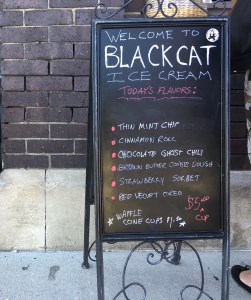 WELCOME TO
BLACK CAT
ICE CREAM
TODAY'S FLAVORS:
THIN MINT CHIP
CINNAMON ROLL
CHOCOLATE GHOST CHILI
BROWN BUTTER COOKIE DOUGH
STRAWBERRY SORBET
RED VELVET OREO
$5.00
A CUP
WAFFLE
CONE CUPS